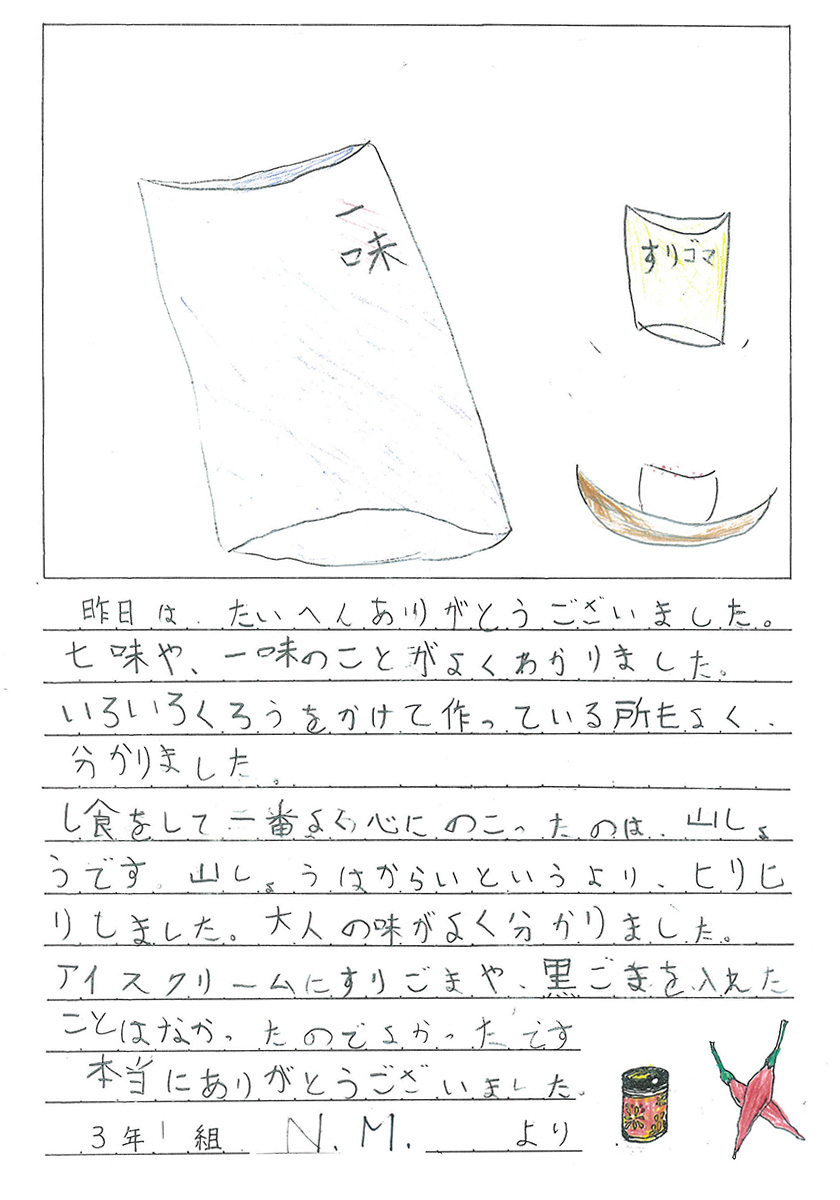 一
味
すりゴマ
昨日は、たいへんありがとうございました。
七味や、一味のことがよくわかりました。
いろいろくろうをかけて作っている所もよく、
分かりました。
し食をして一番よく心にのこったのは、山しょ
うです。山しょうはからいというより、ヒリヒ
リしました。大人の味がよく分かりました。
アイスクリームにすりごまや、黒ごまを入れた
ことはなかったのでよかったです
本当にありがとうございました。
3年1組 N.M. より